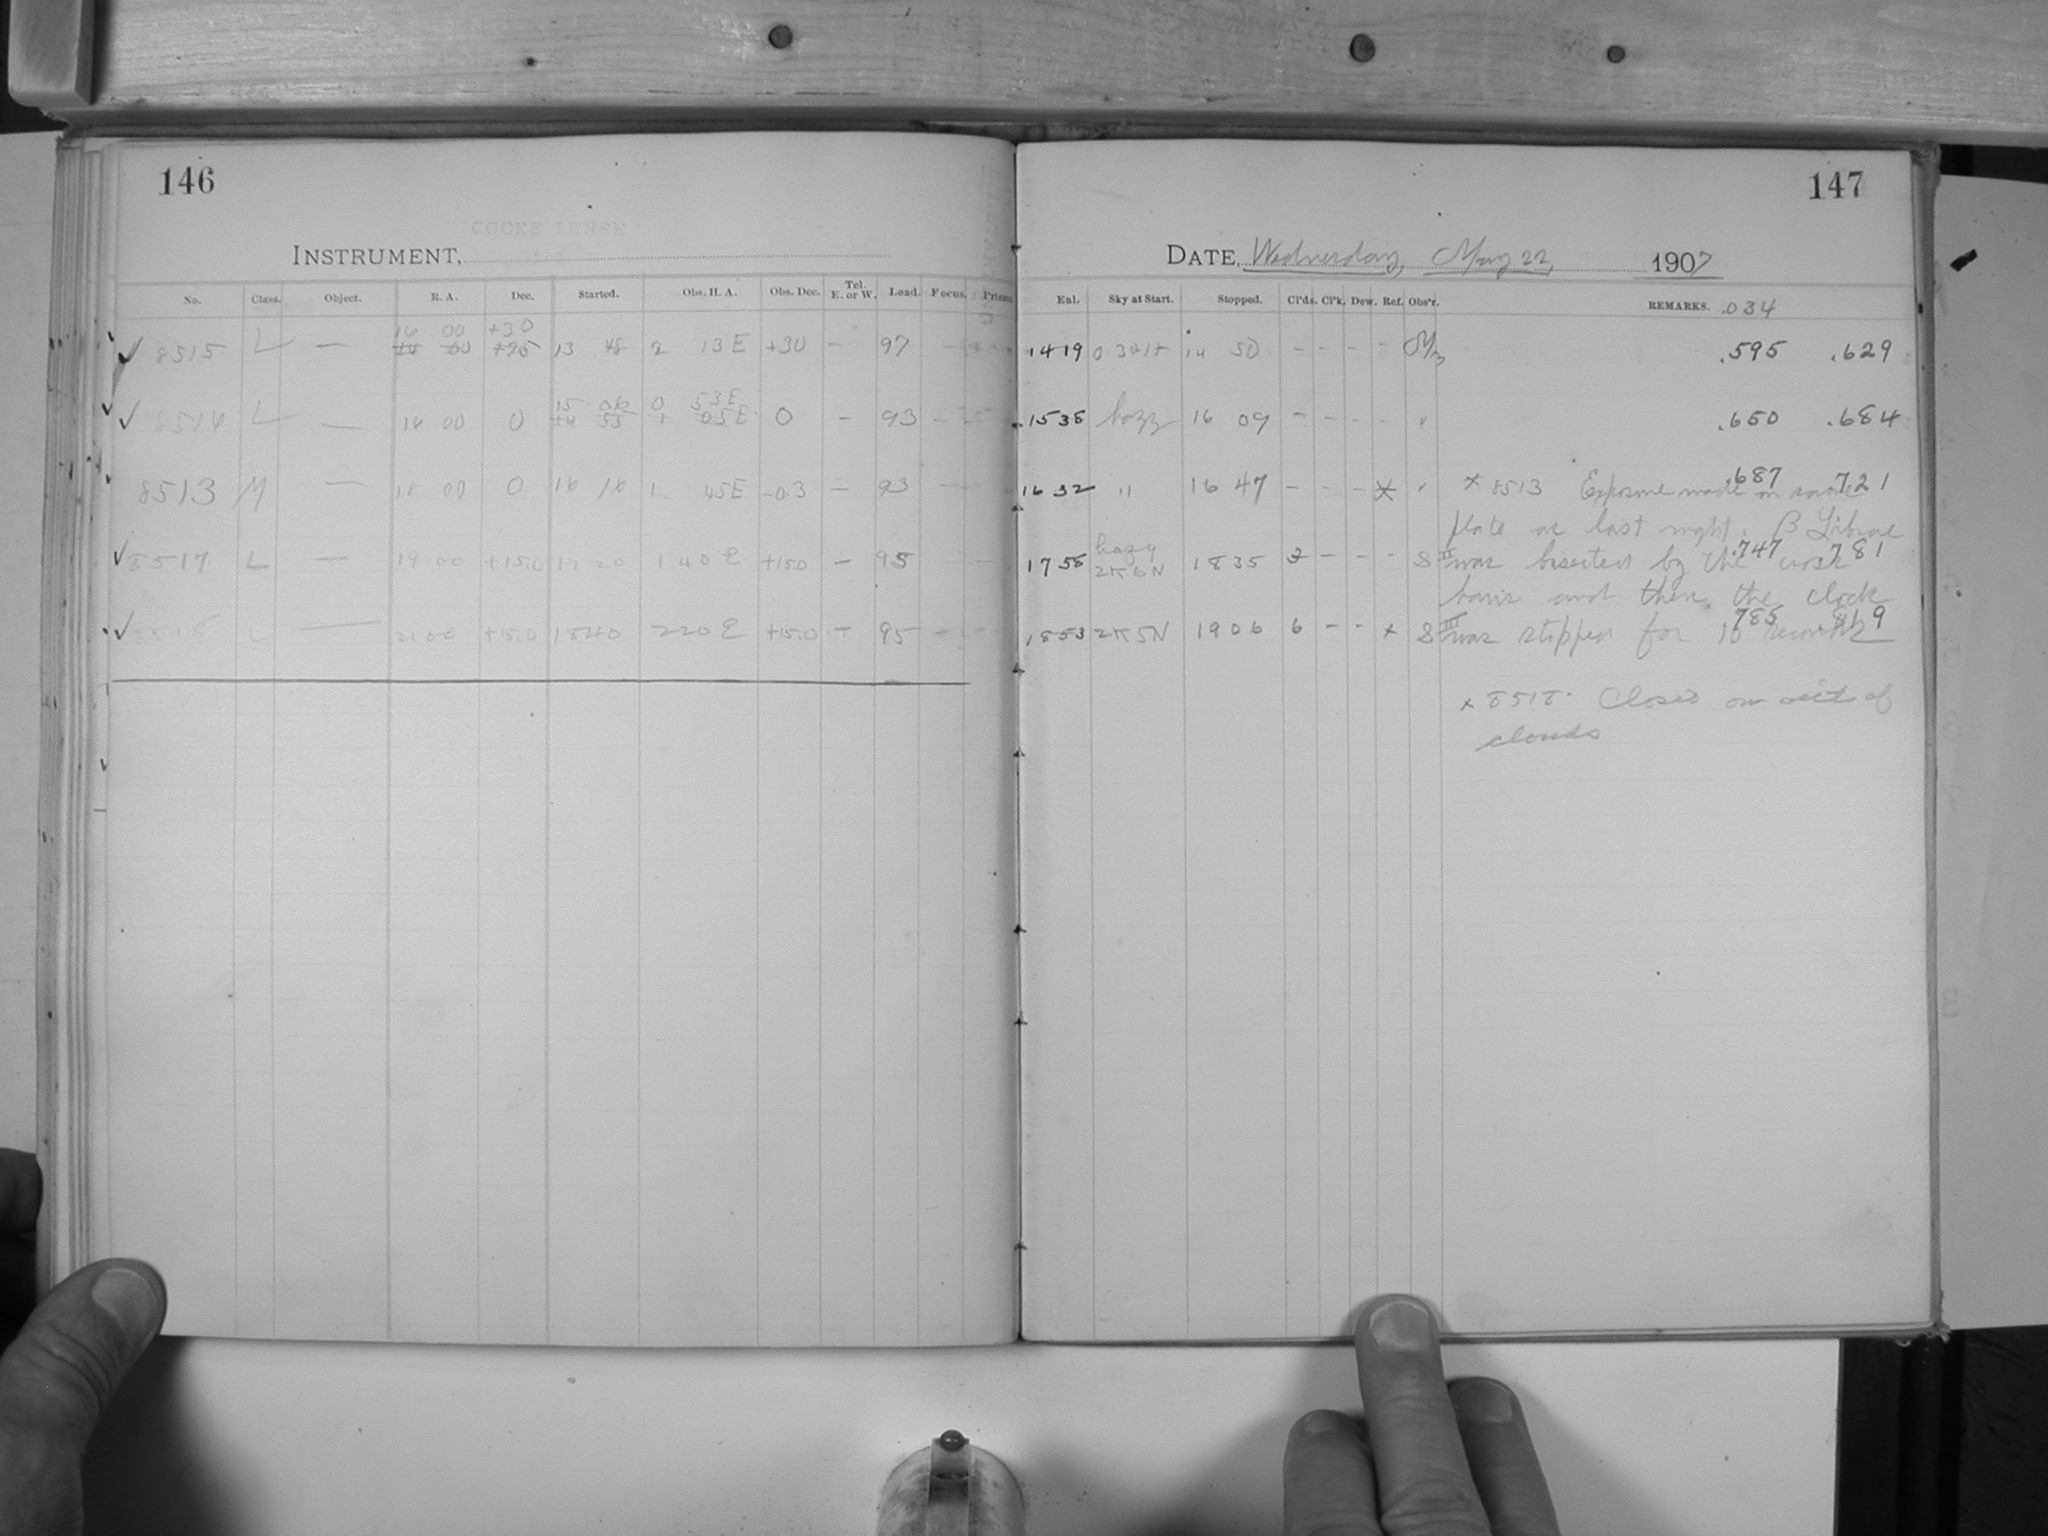 146
COOKE LENSE
INSTRUMENT,
No. Class. Object. R. A. Dec. Started. Obs. H. A. Obs. Dec. Tel. E. or W. Load. Focus. Prisms.
16 00 +30
8515 L — 14 00 +25 13 48 2 13 E +30 — 97 —
15 06 0 53 E
L — 16 00 0 14 55 1 05 E 0 — 93 —
8513 M — 18 00 0 16 16 1 45 E -0.3 — 93 —
8517 L — 19 00 +15.0 17 20 1 40 E +15.0 — 95 —
8518 L — 21 00 +15.0 18 40 2 20 E +15.0 — 95 —
147
DATE, Wednesday, May 22, 1907
Eal. Sky at Start. Stopped. Cl'ds. Cl'k. Dew. Ref. Obs'r. REMARKS. .034
1419 14 50 – – – – M .595 .629
1538 hazy 16 09 – – – – " .650 .684
1632 " 16 47 – – – x " x 8513 Exposure made on same .687 721
plate as last night. β Librae
1756 hazy 2K6N 1835 3 – – – S II was bisected by the cross .747 781
hairs and then the clock
1853 2K5N 1906 6 – – x S III was stopped for 10 785 819
x 8518. Closed on acct of
clouds